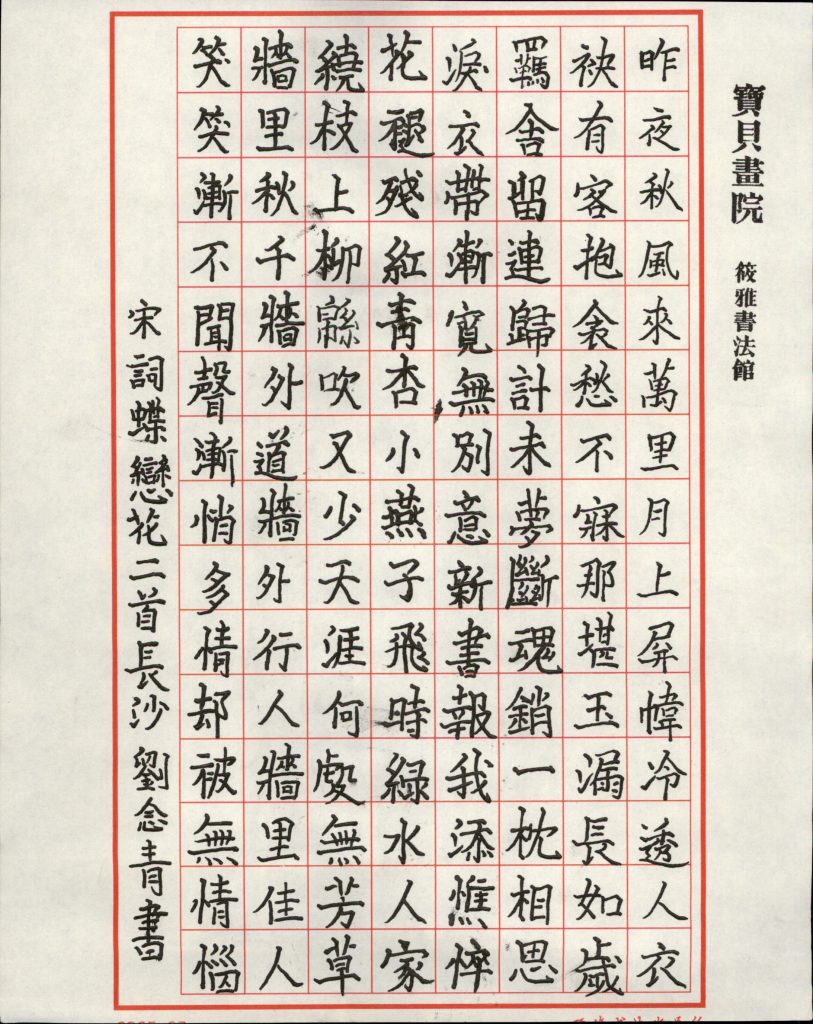 寶貝畫院 筱雅書法館
昨夜秋風來萬里月上屏幃冷透人衣
袂有客抱衾愁不寐那堪玉漏長如歲
羈舍留連歸計未夢斷魂銷一枕相思
淚衣帶漸寬無別意新書報我添憔悴
花褪殘紅青杏小燕子飛時綠水人家
繞枝上柳綿吹又少天涯何處無芳草
牆里秋千牆外道牆外行人牆里佳人
笑笑漸不聞聲漸悄多情却被無情惱
宋詞蝶戀花二首長沙劉念青書